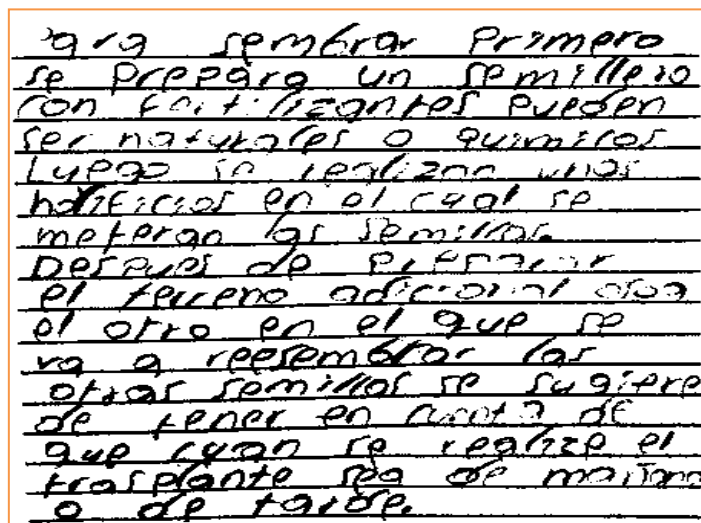 Para sembrar Primero
se prepara un semillero
con fertilizantes pueden
ser naturales o quimicos
Luego se realizan unos
horificios en el cual se
meteran las semillas.
Despues de preparar
el terreno adicional osea
el otro en el que se
va a reesembrar las
otras semillas se sugiere
de tener en cuenta de
que cuan se realize el
trasplante sea de mañana
o de tarde.